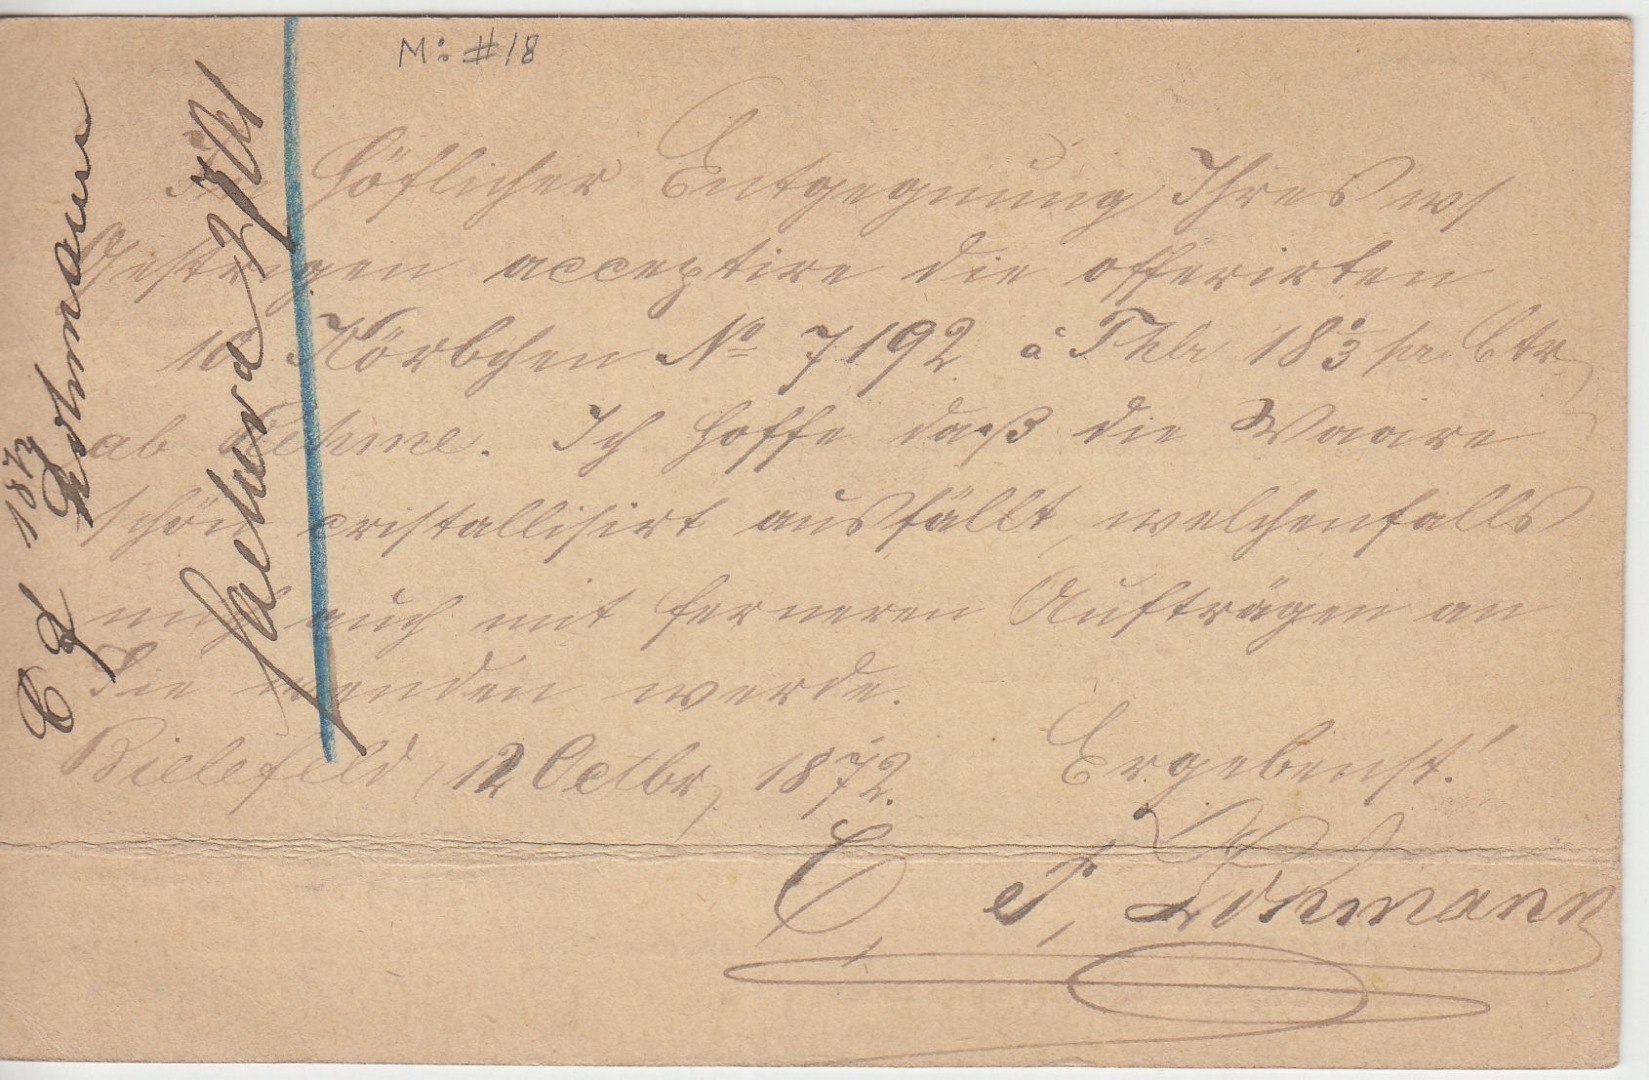 M: #18
In höflicher Entgegnung Ihres w/
Gestrigen acceptire die offerirten
10 Körbchen No 7192 à Thlr 18⅔ pr Ctr,
ab Rehme. Ich hoffe daß die Waare
schön cristallisirt ausfällt, welchenfalls
mich auch mit ferneren Aufträgen an
Sie wenden werde.
Bielefeld, 12 Octbr, 1872. Ergebenst!
C, F, Lohmann
C F Lohmann
1872